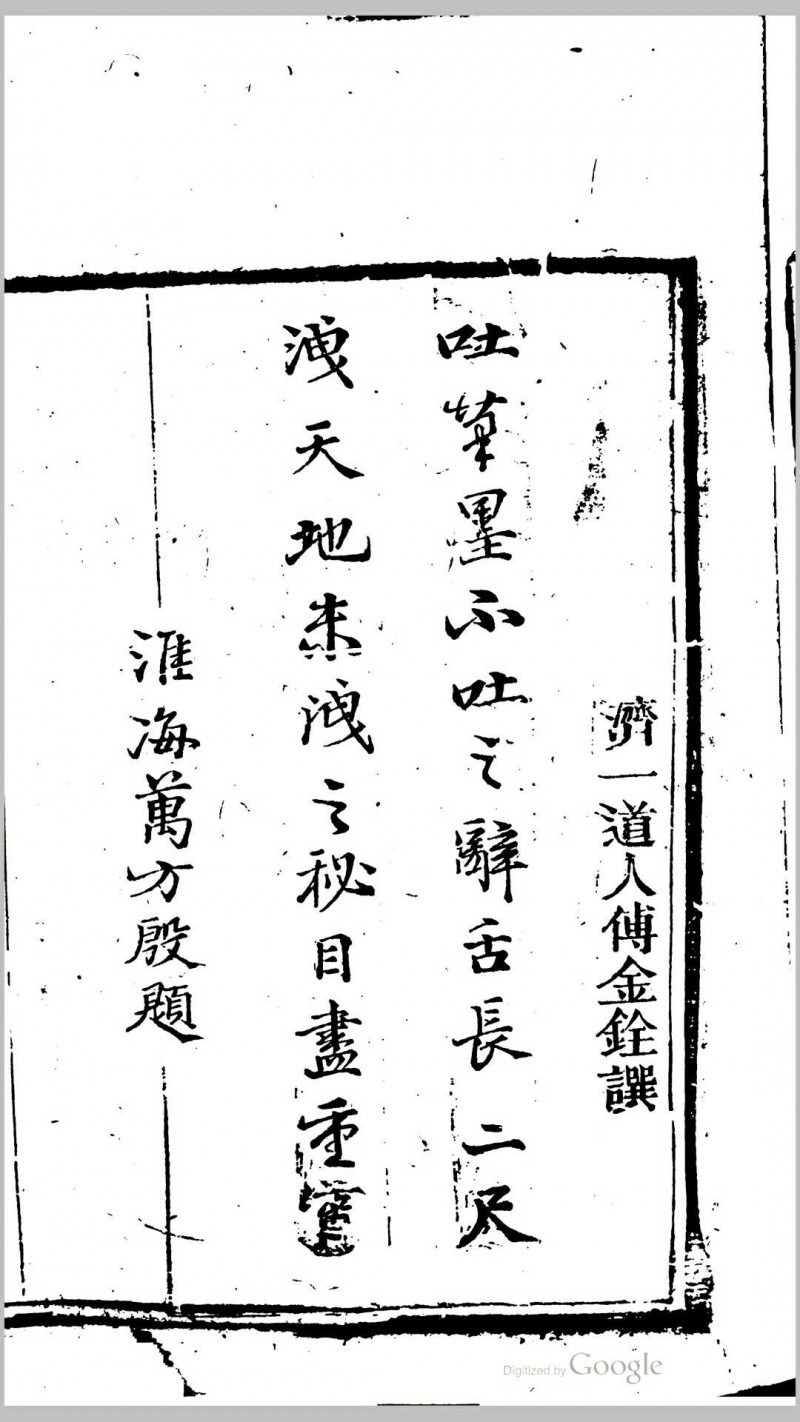 濟一道人傅金銓譔
吐筆墨不吐之辭舌長二尺
洩天地未洩之秘目盡重霄
淮海萬方殷題
Digitized by Google